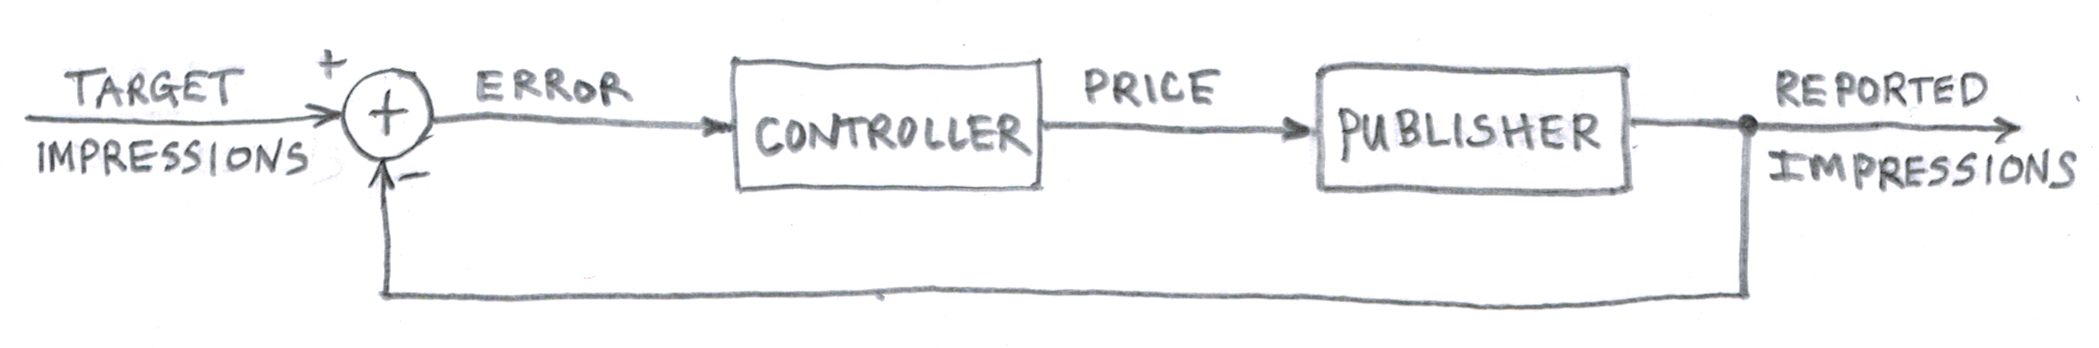 TARGET
IMPRESSIONS
+
+
-
ERROR
CONTROLLER
PRICE
PUBLISHER
REPORTED
IMPRESSIONS